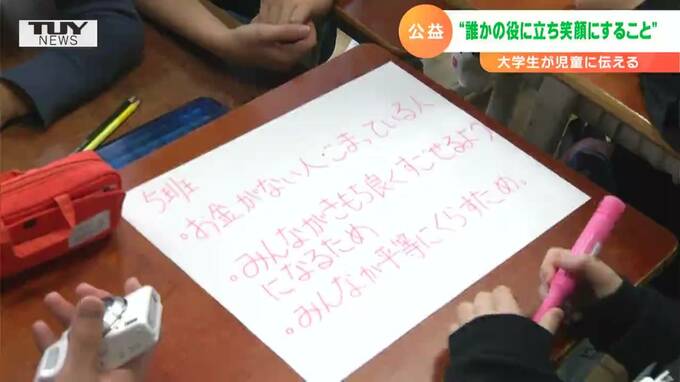 TUY
NEWS
公益
“誰かの役に立ち笑顔にすること”
大学生が児童に伝える
5班
。お金がない人・こまっている人
。みんながきもち良くすごせるよう
になるため
。みんなが平等にくらすため。